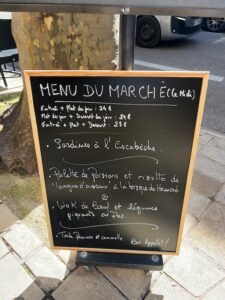 MENU DU MARCHÉ (Le Midi)
Entrée + Plat du jour : 24 €
Plat du jour + Dessert du jour : 24 €
Entrée + Plat + Dessert : 28 €
. Sardines à l'Escabèche.
. Palette de Poissons et risotto de
langoustines à la bisque de Homard
ou
. Wok de Bœuf et légumes
piquants au
. Tarte Prunes et cannelle
Bon Appétit !